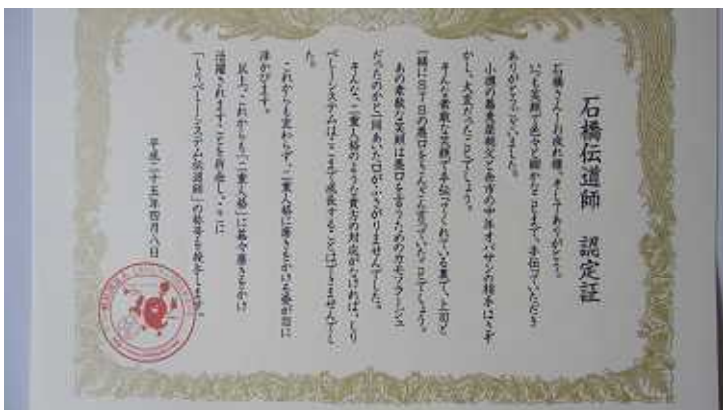 石橋伝道師 認定証
石橋さん〜お疲れ様。そしてありがとう。
いつも笑顔で色々と細かなことまで、手伝っていただき
ありがとうございました。
小櫃の蕎麦屋親父と糸市の中年オバサンの相手はさぞ
かし、大変だったことでしょう。
そんな素敵な笑顔で手伝ってくれている裏で、上司と
一緒に
の悪口をさんざん言っていたことでしょう。
あの素敵な笑顔は悪口を言うためのカモフラージュ
だったのかと一同あいた口がふさがりませんでした。
そんな、二重人格のような貴方の対応がなければ、しり
べしーシステムはここまで成長することはできませんでし
た。
これからも変わらず、二重人格に磨きをかける姿が目に
浮かびます。
以上、これからも「二重人格」に益々磨きをかけ
活躍されますことを祈念し、ここに
「しりべしーシステム伝道師」の称号を授与します。
平成二十五年四月八日